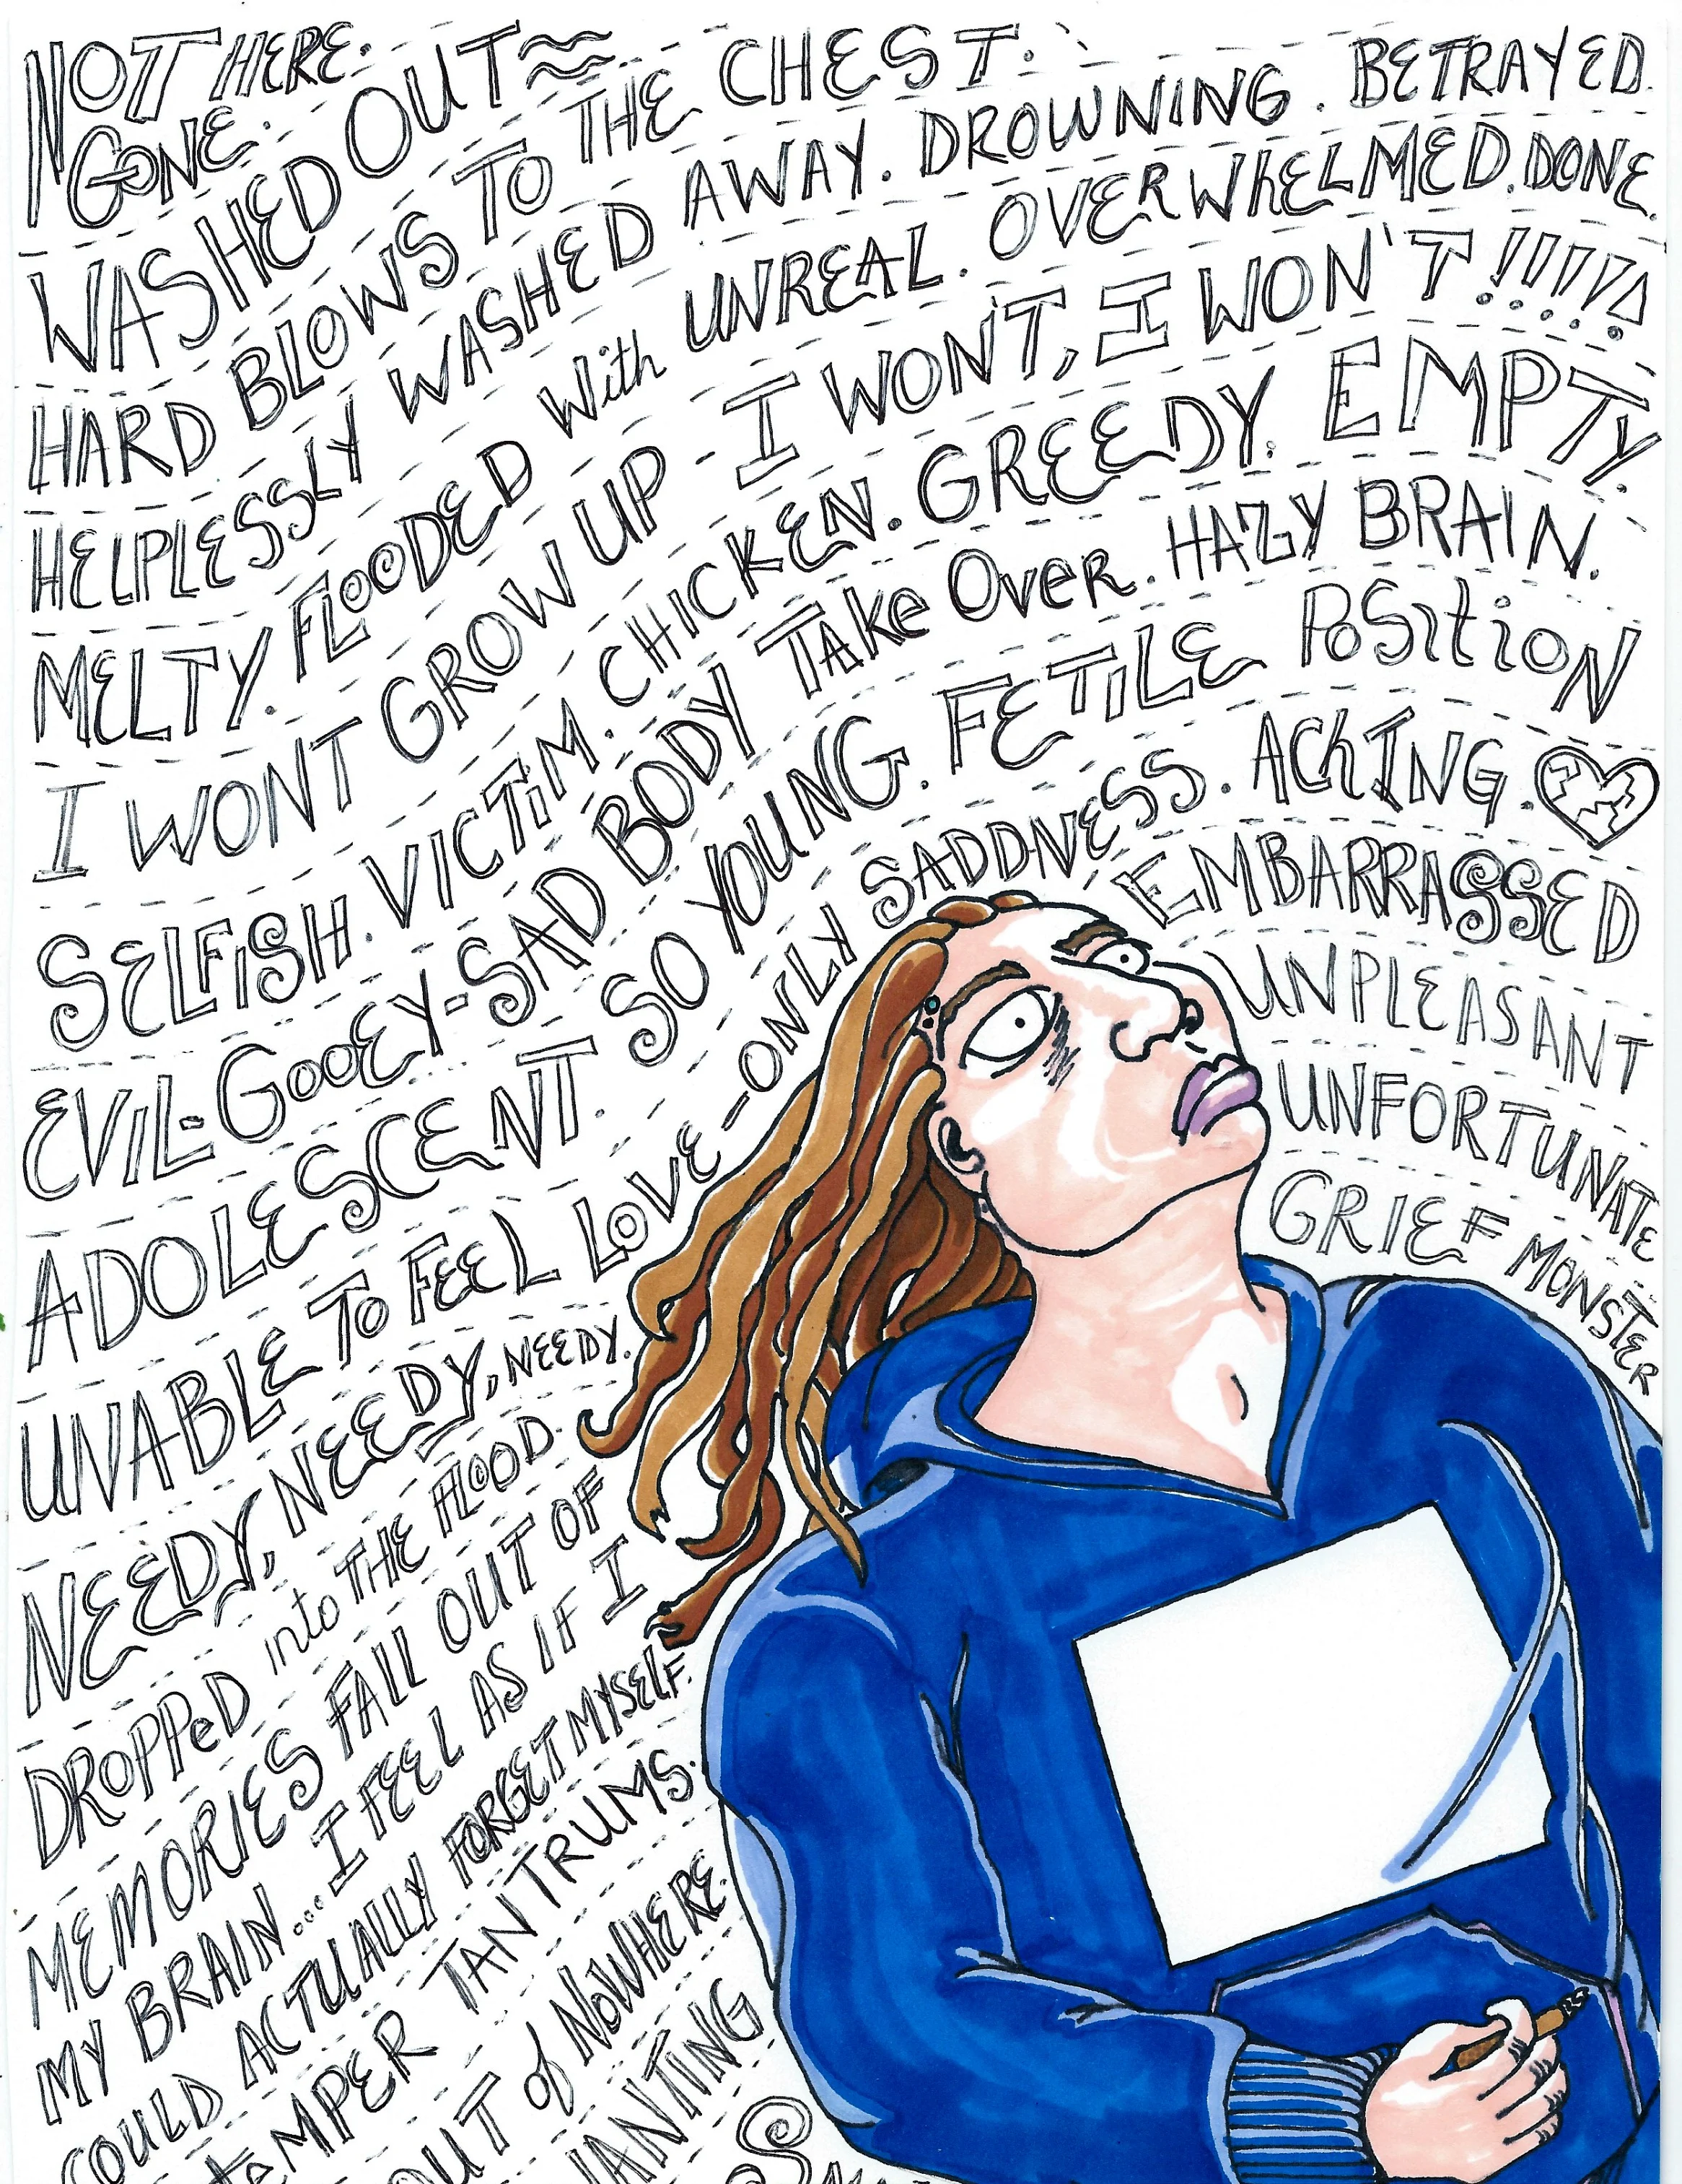 NOT HERE.
GONE.
WASHED OUT
HARD BLOWS TO THE CHEST.
HELPLESSLY WASHED AWAY. DROWNING. BETRAYED.
MELTY. FLOODED With UNREAL. OVERWhELMED. DONE.
I WONT GROW UP - I WONT, I WON'T!!!!!!
SELFiSH. VICTiM. CHiCKEN. GREEDY. EMPTY.
EVIL-GOOEY-SAD BODY TAke OveR. HAZY BRAIN.
ADOLESCENT. SO YOUNG. FETiLE POSitiON
UNABLE TO FEEL LOVE-ONLY SADDNESS. AChING.
EMBARRASSED
UNPLEASANT
UNFORTUNATE
GRIEF MONSTER
NEEDY, NEEDY, NEEDY.
DROPPeD into THE FLOOD.
MEMORIES FALL OUT OF
MY BRAIN... I FEEL AS IF I
COULD ACTUALLY FORGET MYSELF.
teMPER TANTRUMS.
OUT of NOWHERE.